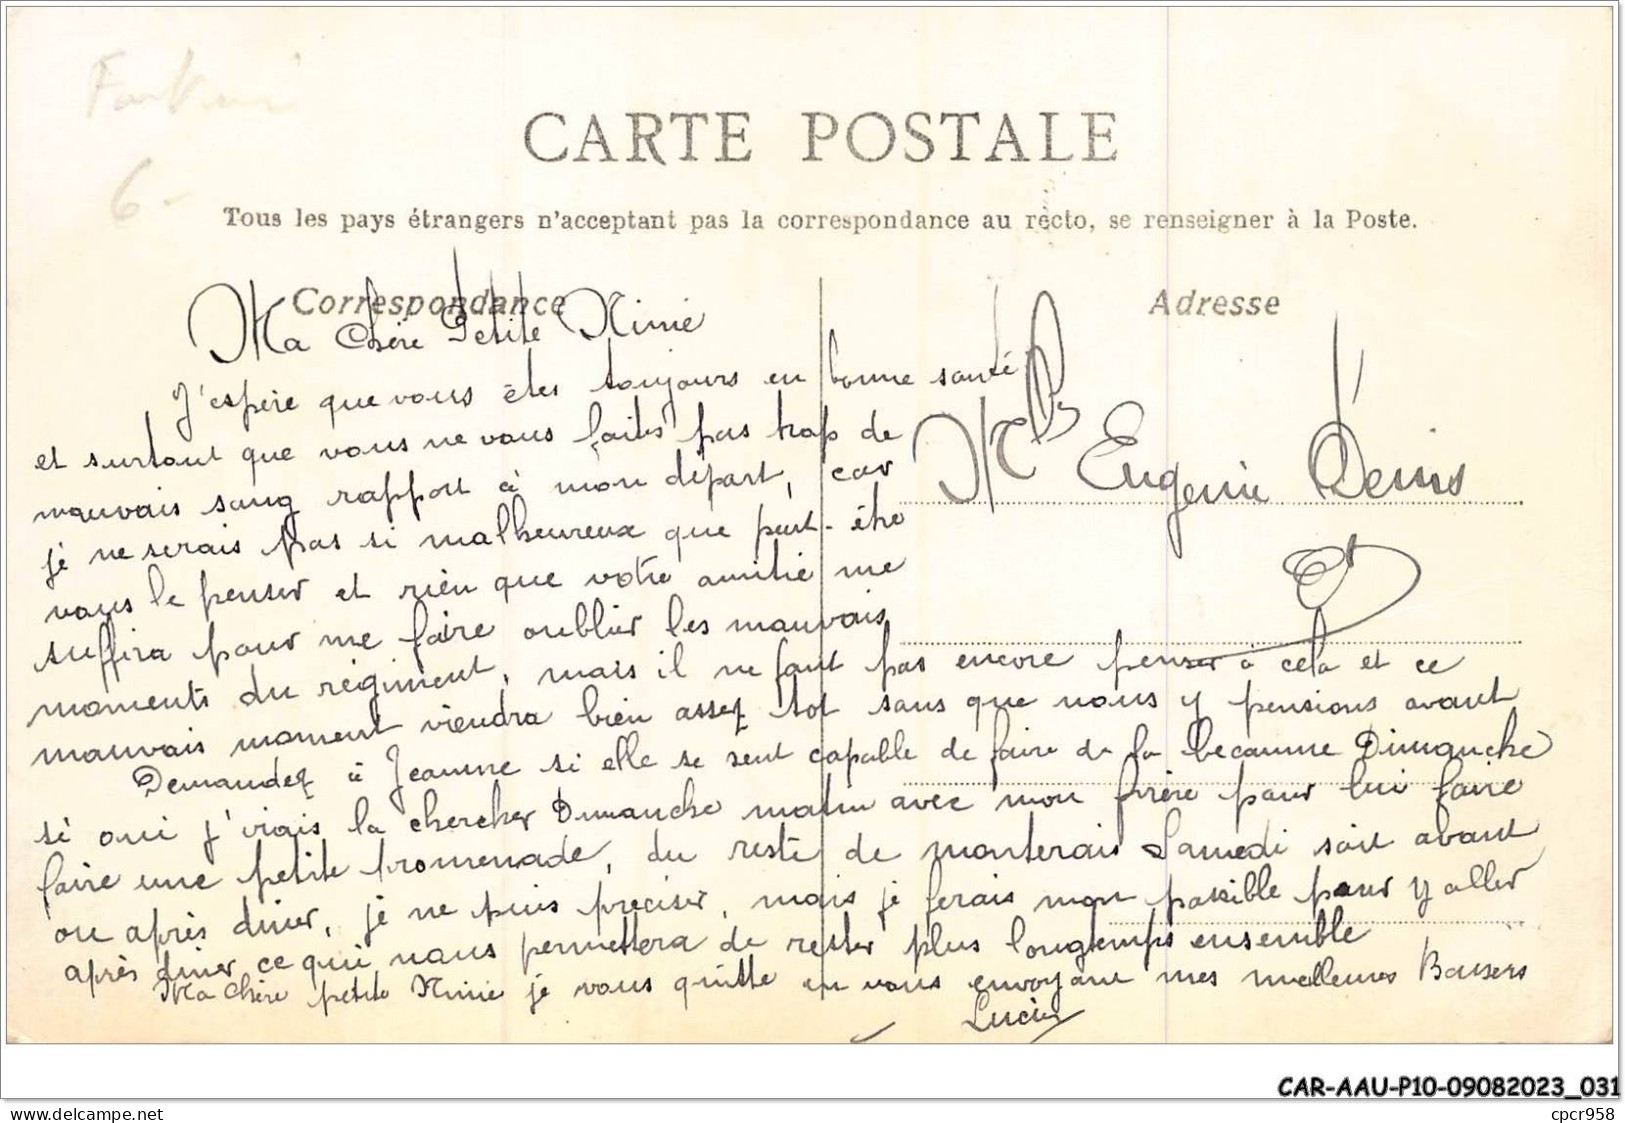 6-
CARTE POSTALE
Tous les pays étrangers n'acceptant pas la correspondance au recto, se renseigner à la Poste.
Correspondance
Adresse
Ma Chère Petite Ninie
J'espère que vous êtes toujours en bonne santé
et surtout que vous ne vous faites pas trop de
mauvais sang rapport à mon départ, car
je ne serais pas si malheureux que peut-être
vous le penser et rien que votre amitié me
suffira pour me faire oublier les mauvais
moments du régiment, mais il ne faut pas encore penser à cela et ce
mauvais moment viendra bien assez tot sans que nous y pensions avant
Demandez à Jeanne si elle se sent capable de faire de la becanne Dimanche
si oui j'irais la chercher Dimanche matin avec mon frère pour lui faire
faire une petite promenade, du reste de monterais Samedi soit avant
ou après diner, je ne puis preciser, mais je ferais mon possible pour y aller
après diner ce qui nous permettera de rester plus longtemps ensemble
Ma chère petite Ninie je vous quitte en vous envoyant mes meilleures Baisers
Lucien
Mlle Eugenie Denis
CAR-AAU-P10-09082023_031
www.delcampe.net
cpcr958